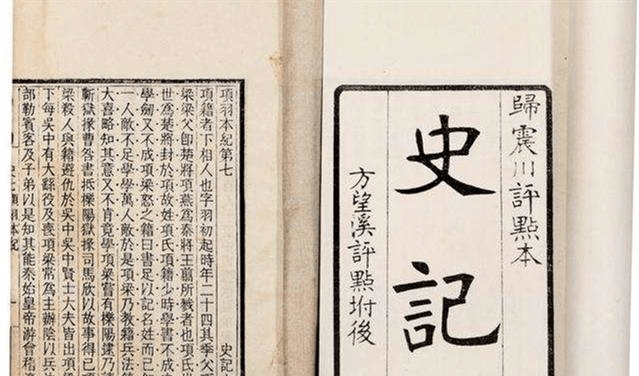 歸震川評點本
史記
方望溪評點坿後
項羽本紀第七
史記
項籍者下相人也字羽初起時年二十四其季父
梁梁父卽楚將項燕爲秦將王翦所戮者也項氏世
世爲楚將封於項故姓項氏項籍少時學書不成
學劍又不成項梁怒之籍曰書足以記名姓而已
一人敵不足學學萬人敵於是項梁乃敎籍兵法
大喜略知其意又不肯竟學項梁嘗有櫟陽逮乃
蘄獄掾曹咎書抵櫟陽獄掾司馬欣以故事得已
梁殺人與籍避仇於吳中吳中賢士大夫皆出項
下每吳中有大繇役及喪項梁常爲主辦陰以兵
部勒賓客及子弟以是知其能秦始皇帝游會稽